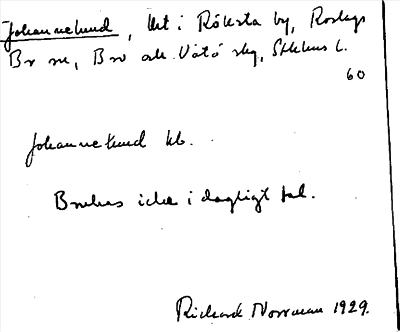 Johannelund, Ut i Röksta by, Roslags
Bro sn, Bro och Vätö skg, Sthlms l.
60
Johannelund kb.
Brukas icke i dagligt tal.
Richard Norrman 1929.